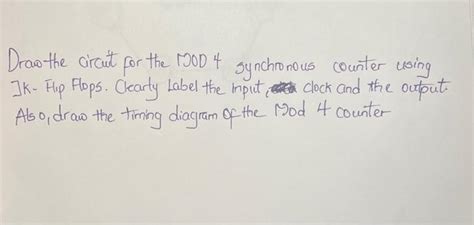 Draw the circuit for the MOD 4 synchronous counter using
JK- Flip Flops. Clearly Label the input, clock and the output.
Also, draw the timing diagram of the Mod 4 counter